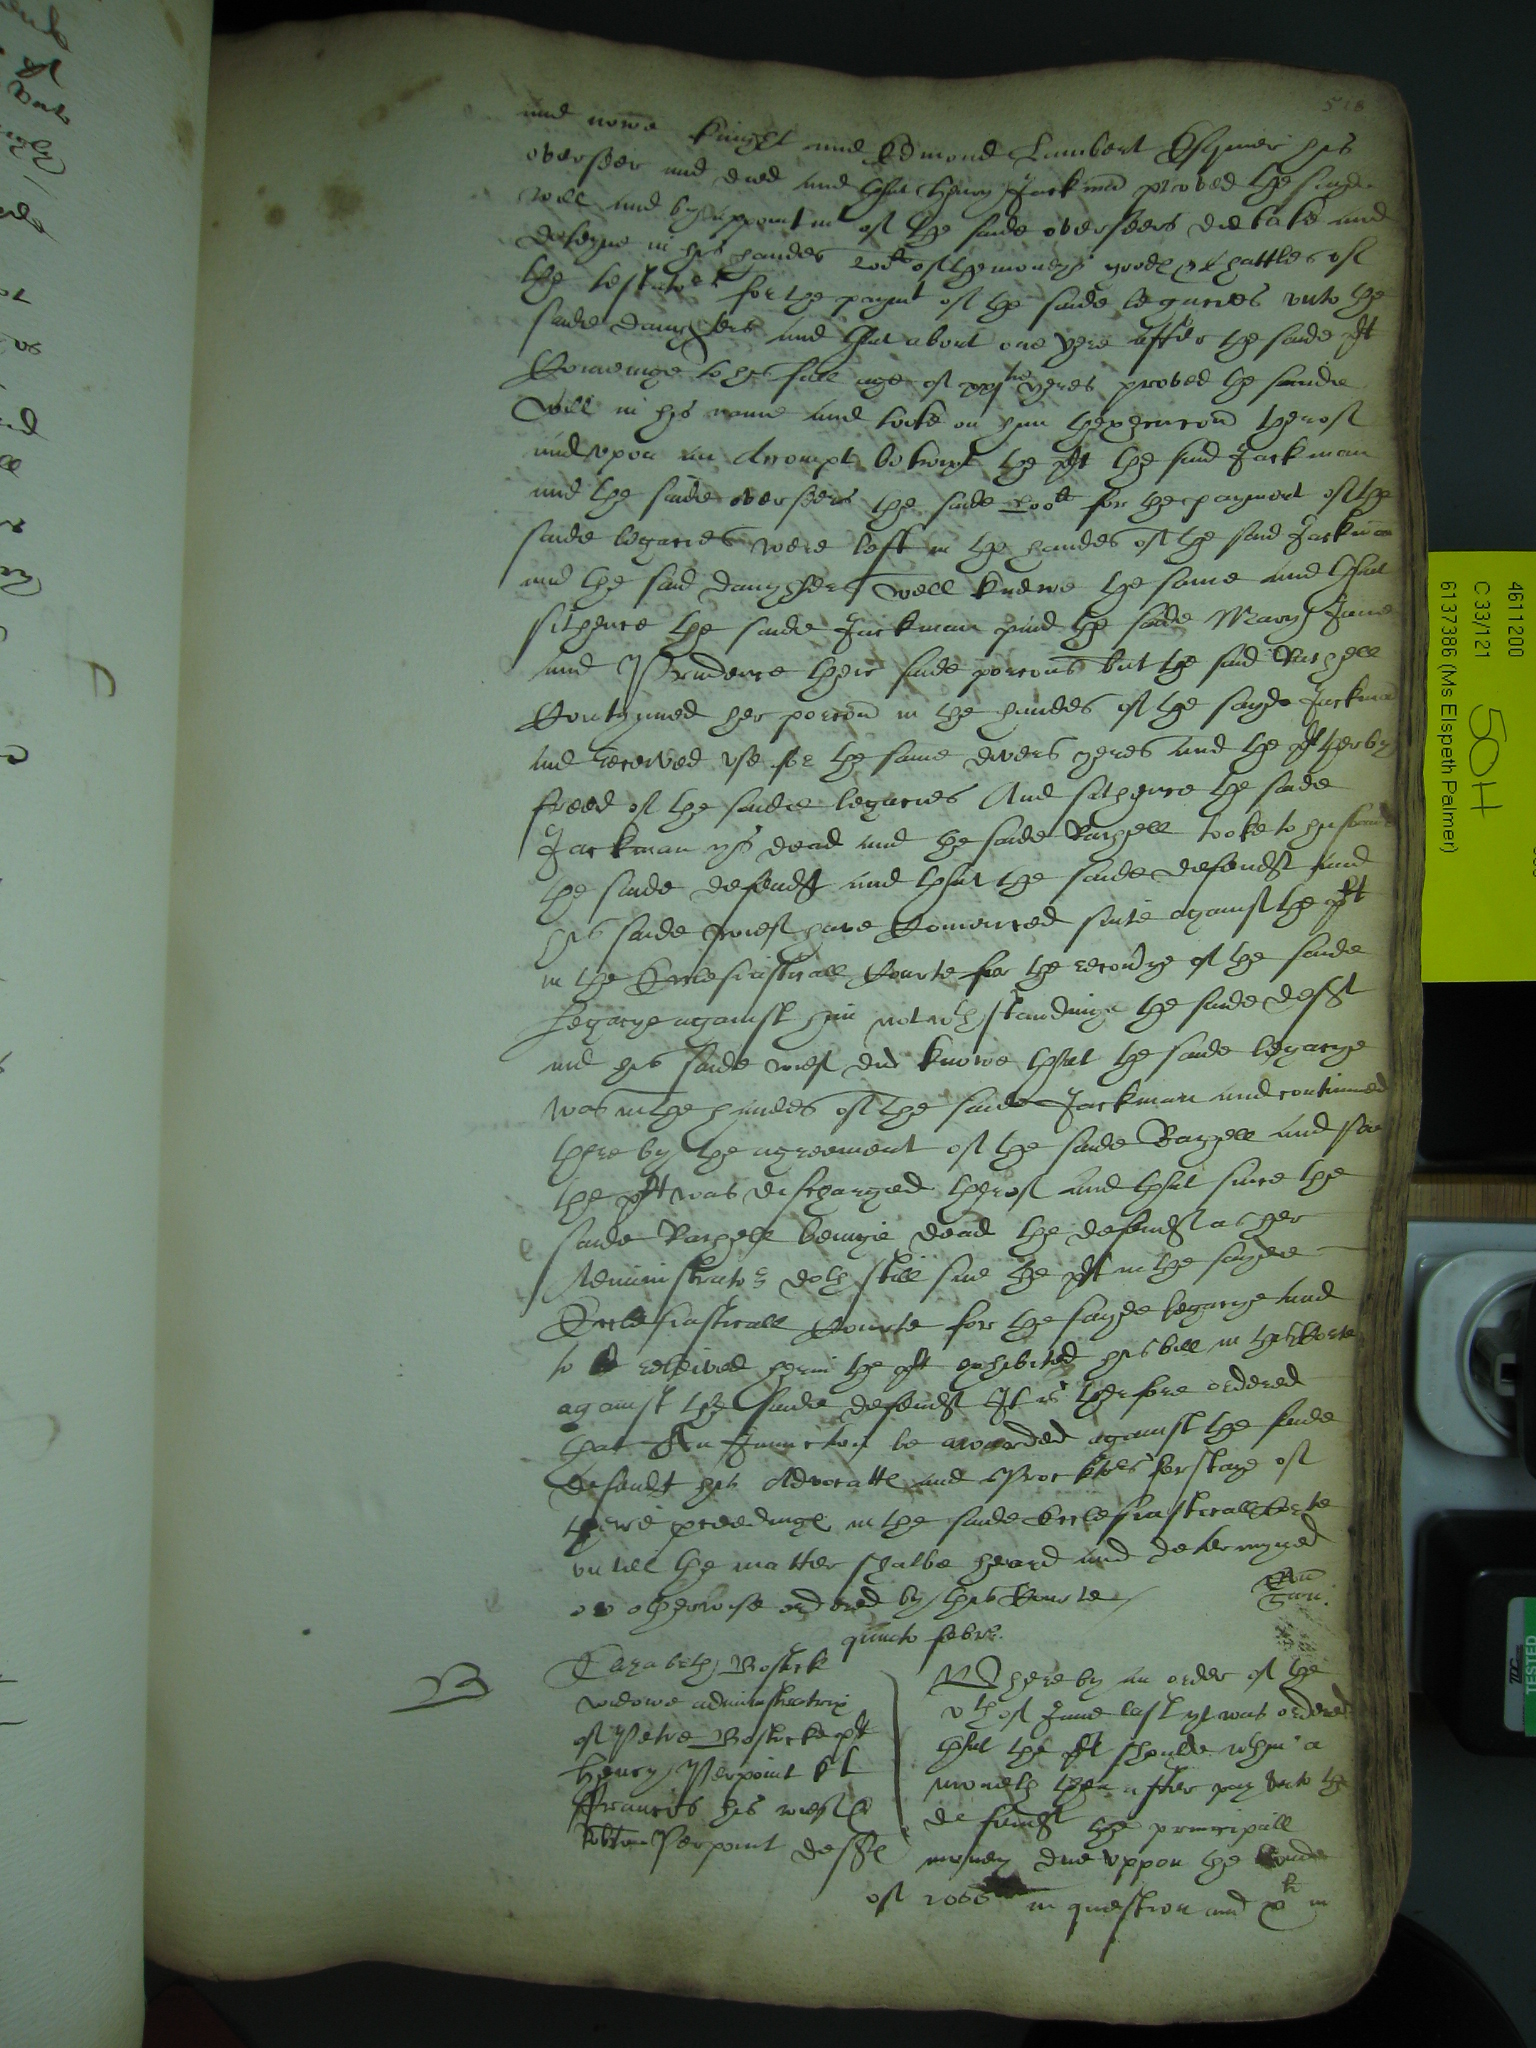 518
and nowe knight and Edmond Lambert Esquier his
overseer and died and that Henry Jackman proved the sayde
will and by appointm of the saide overseers did take and
deteyne in his handes 200li of the moneys goodes & chattles of
the testators for the paymt of the saide legacies unto the
saide daughters and that about one yere after the saide plt
Comeinge to his full age of xxjtie yeres proved the saide
Will in his name and tooke on him thexecucon therof
and upon an Accompt betwixt the plt the said Jackman
and the saide overseers the saide 200li for the payment of the
saide legacies were left in the handes of the said Jackman
and the said daughters well knewe the same and that
sithence the saide Jackman paid the saide Mary Jane
and Prudence their saide porcons but the said Rachell
Contynued her porcon in the handes of the sayde Jackman
and received use for the same divers yeres and the plt therby
freed of the saide legacies And sithence the saide
Jackman ys dead and the saide Rachell tooke to husband
the saide defendt and that the saide defendt and
his saide wief have Comenced suite against the plt
in the Ecclesiasticall Courte for the recoverye of the saide
Legacye against him notwthstandinge the saide deft
and his saide wief did knowe that the saide legacye
was in the handes of the saide Jackman and continued
there by the agreement of the saide Rachell and soe
the plt was discharged therof and that since the
saide Rachell beinge dead the defendt as her
Administrator doth still sue the plt in the sayde
Ecclesiasticall Courte for the sayde legacye and
to be releived herin the plt exhibited his bill in this Corte
against the saide defendt It is therfore ordered
that An Iniunction be awarded against the saide
defendt his Advocattes and Procktors for staye of
there proceedinges in the saide Ecclesiasticall Corte
untill the matter shalbe heard and determyned
or otherwise ordered by this Courte
quinto febr.
Elizabeth Bostock
widowe administratrix
of Petre Bostocke plt
Henry Pierpoint kt
Frances his wief &
Pierpoint deftes
Where by an order of the
vth of June last yt was ordered
that the plt shoulde wthin a
moneth then after pay unto the
defendt the principall
money due uppon the bonde
of 1000li in question and xli in
B
4611200
C 33/121
50H
6137386 (Ms Elspeth Palmer)
TESTED